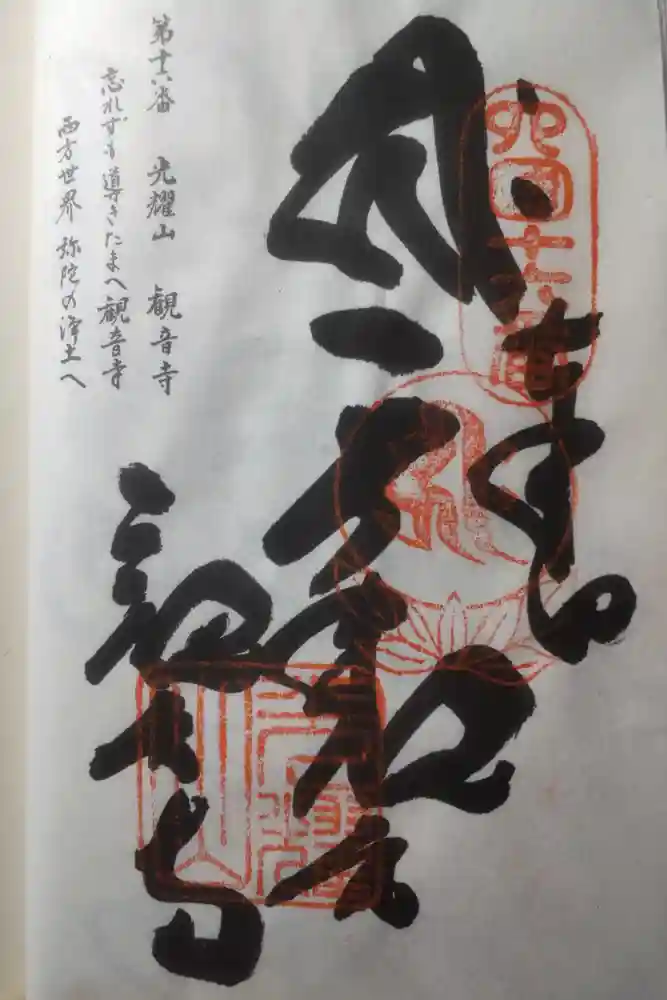 四国十六番
奉納
観音寺
第十六番 光耀山 観音寺
忘れずも導きたまへ観音寺
西方世界 弥陀の浄土へ